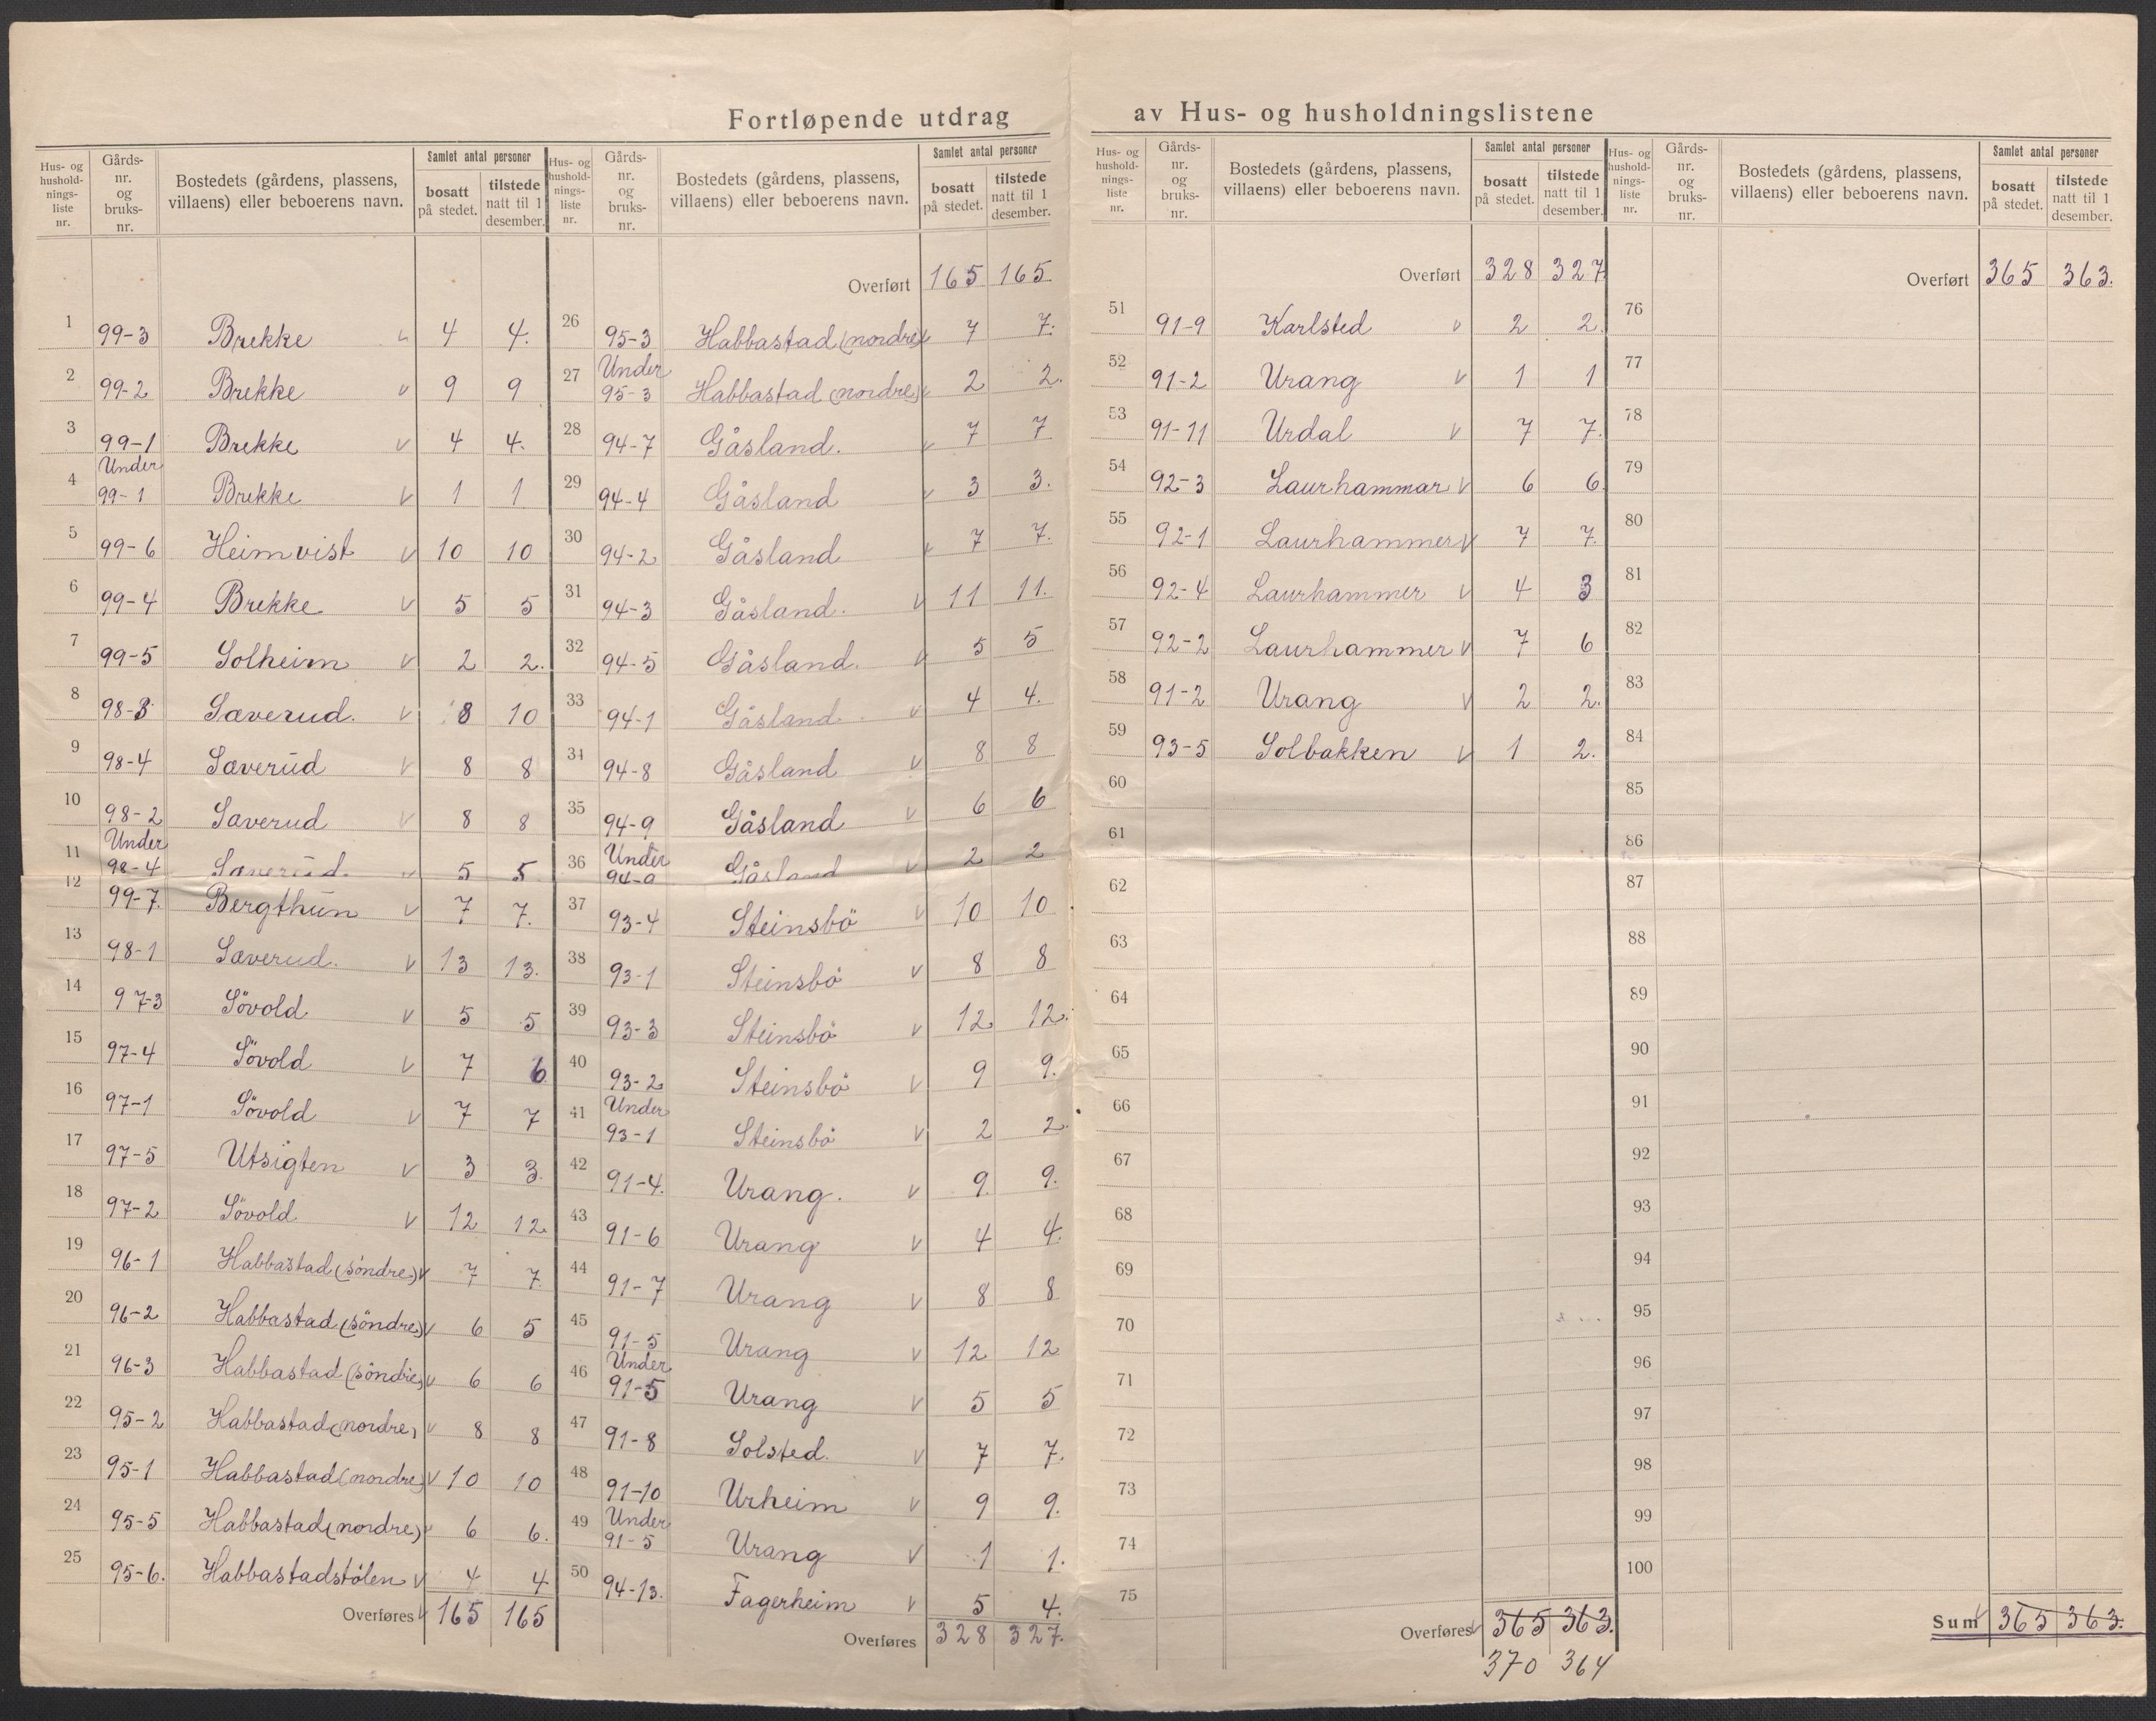 Fortløpende utdrag av Hus- og husholdningslistene
Hus- og husholdnings-liste nr. | Gårds-nr. og bruks-nr. | Bostedets (gårdens, plassens, villaens) eller beboerens navn. | Samlet antal personer | bosatt på stedet. | tilstede natt til 1 desember.
1 99-3 Brekke 4 4.
2 99-2 Brekke v 9 9
3 99-1 Brekke v 4 4.
4 Under 99-1 Brekke v 1 1
5 99-6 Heimvist v 10 10
6 99-4 Brekke v 5 5
7 99-5 Solheim v 2 2.
8 98-3 Sæverud. v 8 10
9 98-4 Sæverud v 8 8
10 98-2 Sæverud v 8 8
11 Under 98-4 Sæverud. v 5 5
12 99-7. Bergthun v 7 7.
13 98-1 Sæverud. v 13 13.
14 97-3 Sövold v 5 5
15 97-4 Sövold v 7 6
16 97-1 Sövold v 7 7
17 97-5 Utsigten v 3 3.
18 97-2 Sövold v 12 12.
19 96-1 Habbastad (söndre) v 7 7.
20 96-2 Habbastad (söndre) v 6 5
21 96-3 Habbastad (söndre) v 6 6
22 95-2 Habbastad (nordre) v 8 8
23 95-1 Habbastad (nordre) v 10 10
24 95-5 Habbastad (nordre) v 6 6.
25 95-6. Habbastadstölen v 4 4
Overføres v 165 165
Hus- og husholdnings-liste nr. | Gårds-nr. og bruks-nr. | Bostedets (gårdens, plassens, villaens) eller beboerens navn. | Samlet antal personer | bosatt på stedet. | tilstede natt til 1 desember.
Overført 165 165
26 95-3 Habbastad (nordre) v 7 7.
27 Under 95-3 Habbastad (nordre) v 2 2.
28 94-7 Gåsland. v 7 7
29 94-4 Gåsland v 3 3.
30 94-2 Gåsland v 7 7.
31 94-3 Gåsland. v 11 11.
32 94-5 Gåsland. v 5 5
33 94-1 Gåsland. v 4 4.
34 94-8 Gåsland v 8 8
35 94-9 Gåsland v 6 6
36 Under 94-9 Gåsland v 2 2
37 93-4 Steinsbö v 10 10
38 93-1 Steinsbö v 8 8
39 93-3 Steinsbö v 12 12.
40 93-2 Steinsbö v 9 9.
41 Under 93-1 Steinsbö v 2 2.
42 91-4. Urang. v 9. 9.
43 91-6 Urang v 4 4.
44 91-7 Urang v 8 8
45 91-5 Urang v 12 12
46 Under 91-5 Urang v 5 5
47 91-8 Solsted. v 7 7.
48 91-10 Urheim v 9 9.
49 Under 91-5 Urang v 1 1.
50 94-13. Fagerheim v 5 4.
Overføres 328 327.
Hus- og husholdnings-liste nr. | Gårds-nr. og bruks-nr. | Bostedets (gårdens, plassens, villaens) eller beboerens navn. | Samlet antal personer | bosatt på stedet. | tilstede natt til 1 desember.
Overført 328 327.
51 91-9 Karlsted v 2 2.
52 91-2 Urang v 1 1
53 91-11 Urdal v 7 7.
54 92-3 Laurhammar v 6 6.
55 92-1 Laurhammer v 7 7.
56 92-4 Laurhammer v 4 3
57 92-2 Laurhammer v 7 6
58 91-2 Urang v 2 2.
59 93-5 Solbakken v 1 2.
60
61
62
63
64
65
66
67
68
69
70
71
72
73
74
75
Overføres v 365 363.
370 364
Hus- og husholdnings-liste nr. | Gårds-nr. og bruks-nr. | Bostedets (gårdens, plassens, villaens) eller beboerens navn. | Samlet antal personer | bosatt på stedet. | tilstede natt til 1 desember.
Overført 365 363.
76
77
78
79
80
81
82
83
84
85
86
87
88
89
90
91
92
93
94
95
96
97
98
99
100
Sum v 365 363.